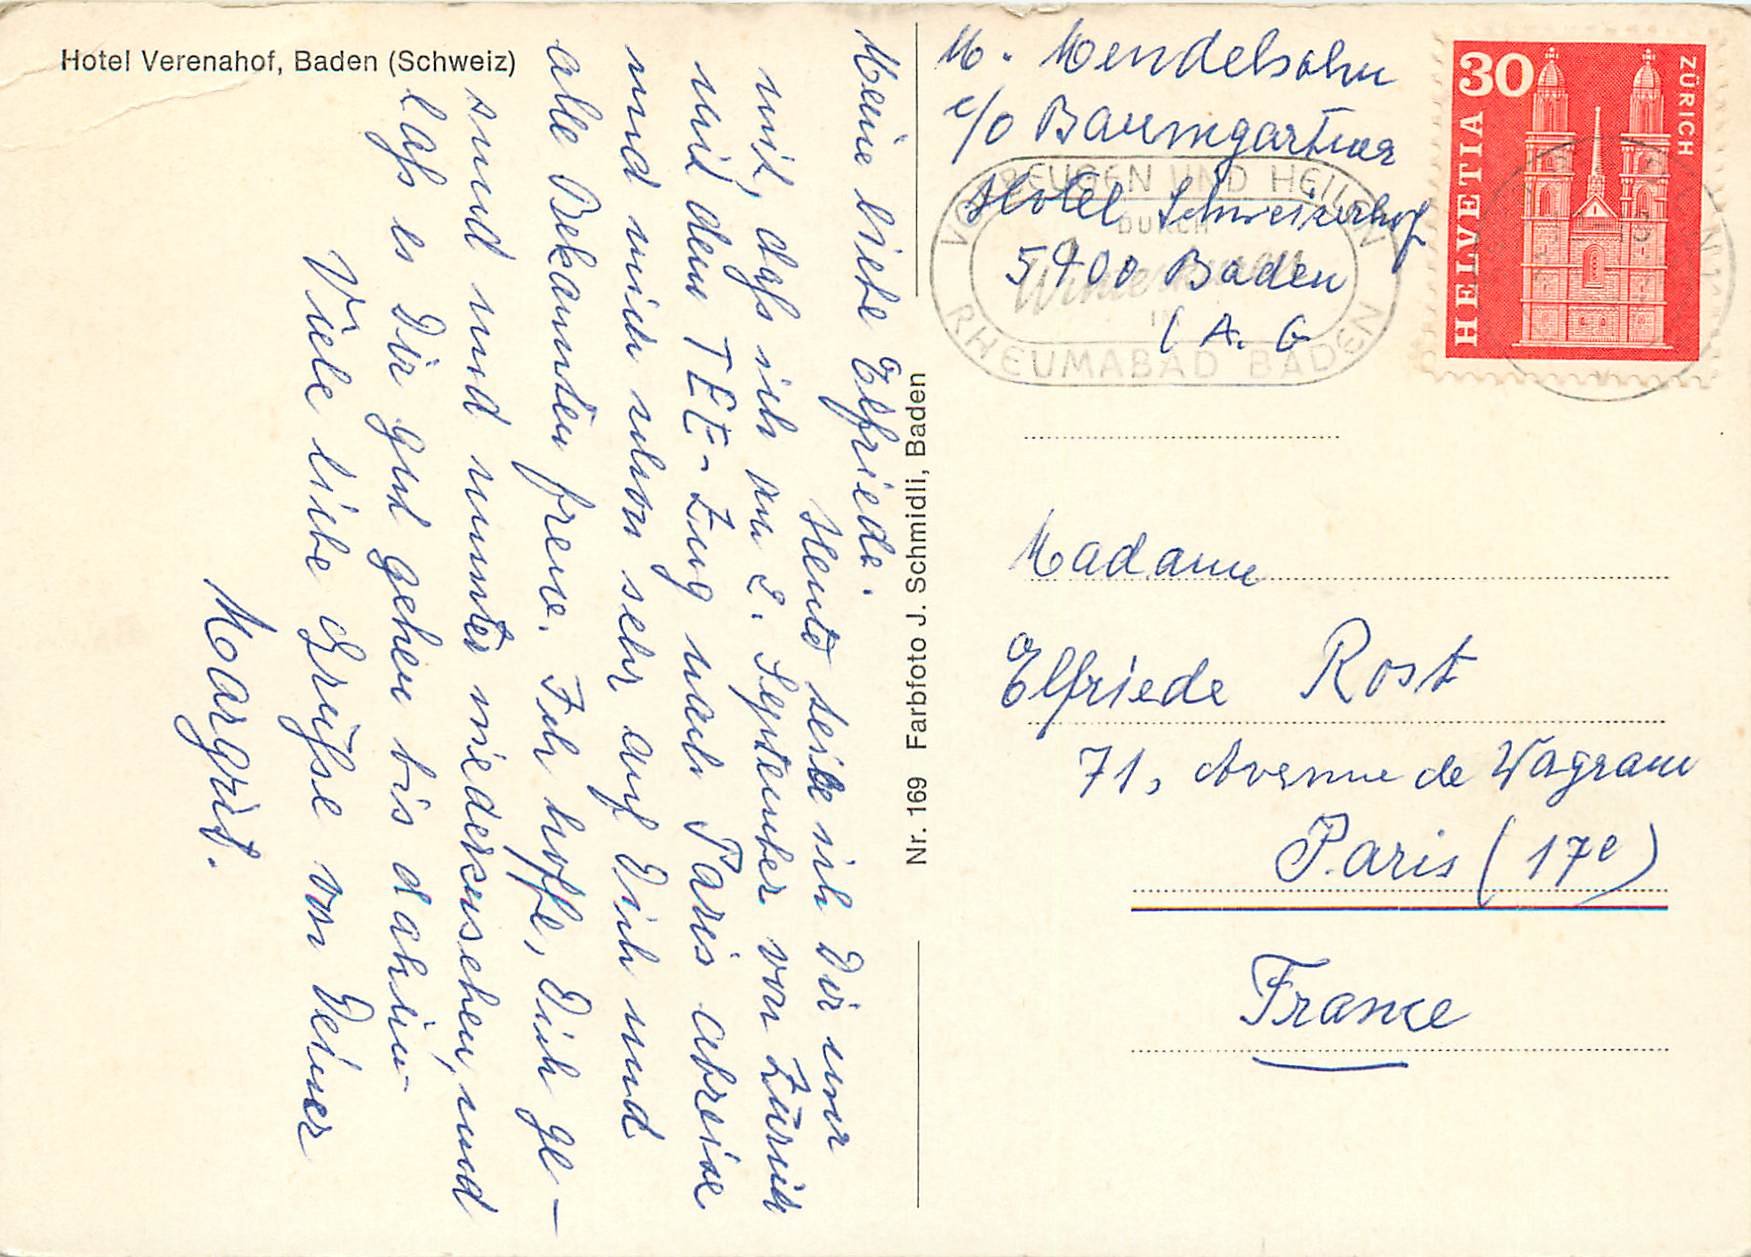 Hotel Verenahof, Baden (Schweiz)
Meine liebe Elfriede.
Heute teile ich Dir nur
mit, dass ich am 2. September von Zürich
mit dem TEE-Zug nach Paris abreise
und mich schon sehr auf Dich und
alle Bekannten freue. Ich hoffe, Dich ge-
sund und munter wiederzusehen, und
lass es Dir gut gehen bis dahin-
Viele liebe Grüsse von Deiner
Margrit.
Nr. 169 Farbfoto J. Schmidli, Baden
M. Mendelsohn
c/o Baumgartner
Hotel Schweizerhof
5400 Baden
(A. G
VORBEUGEN UND HEILEN
DURCH
Winterkuren
IM
RHEUMABAD BADEN
30
HELVETIA
ZÜRICH
Madame
Elfriede Rost
71, Avenue de Wagram
Paris (17e)
France